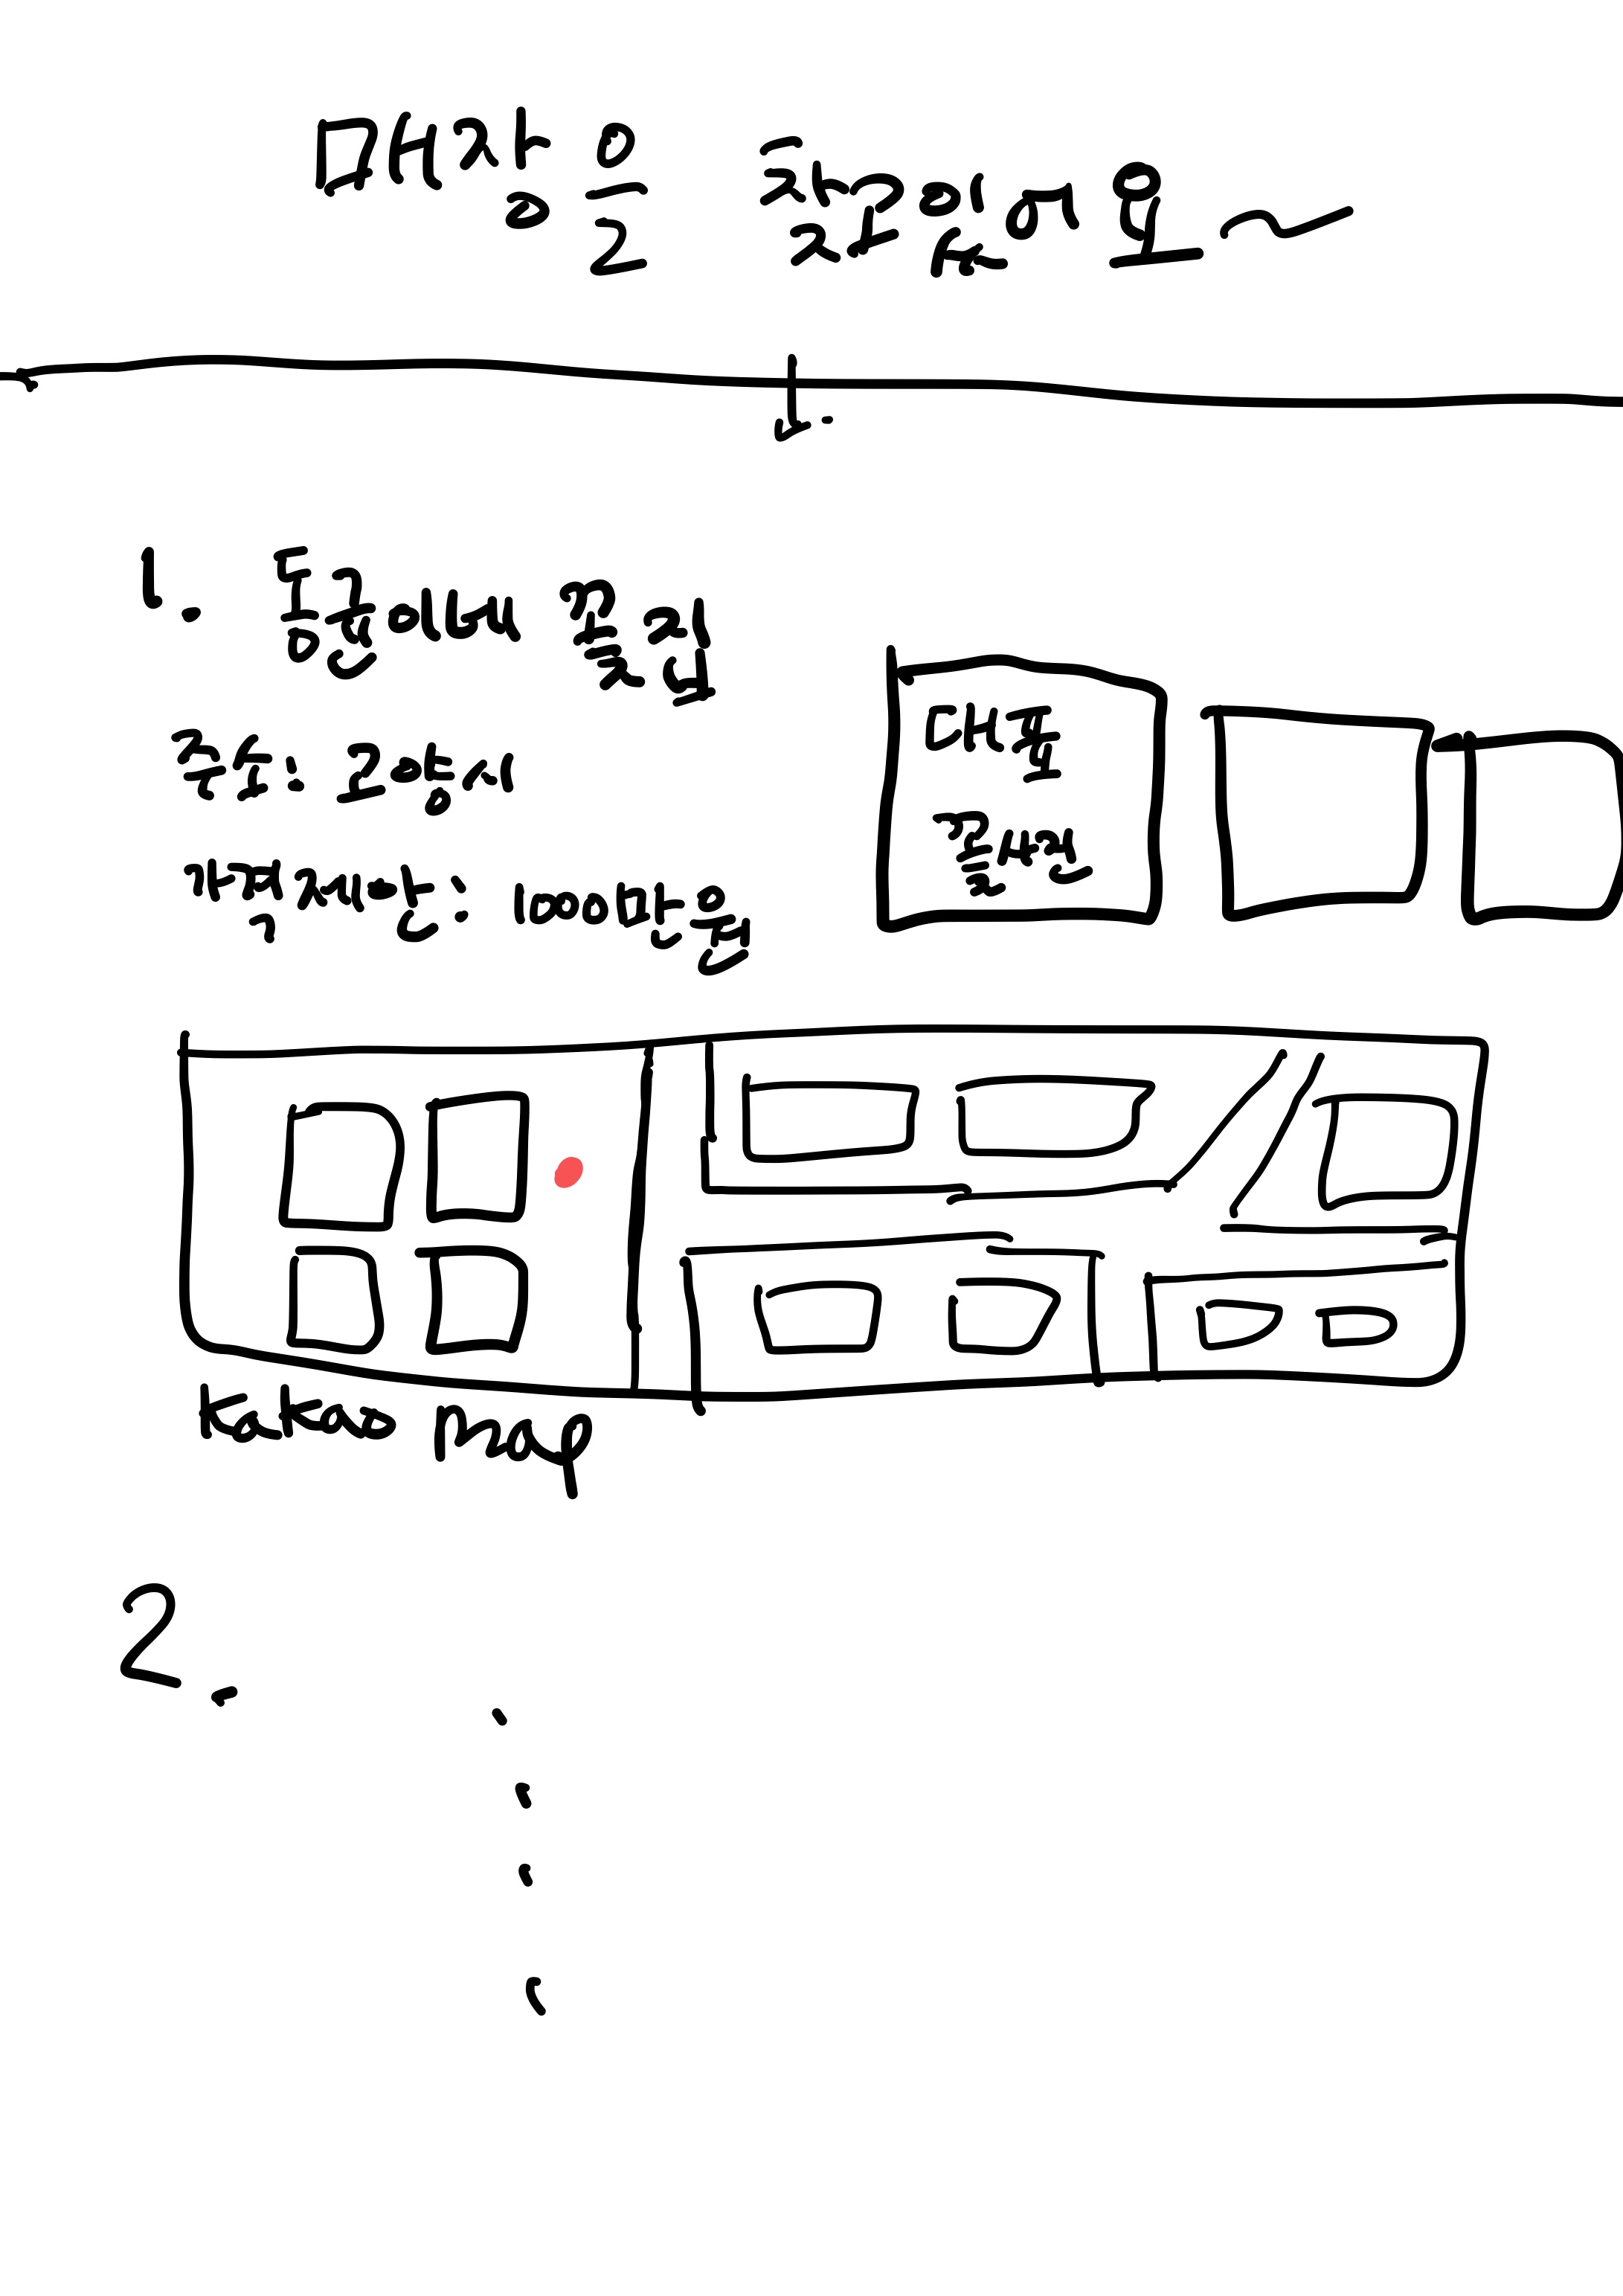 매장을 찾았어요~
1. 동권이네 꽃집
주소: 고양시
가족제안: 1000만원
대표
꽃사진
kakao map
2.